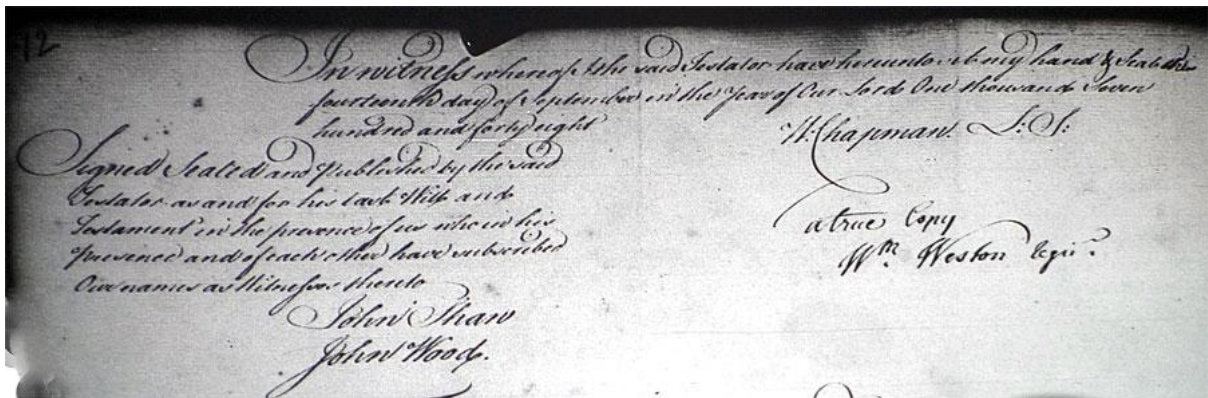 12
In witness whereof I the said Testator have hereunto set my hand & Seal the
fourteenth day of September in the Year of Our Lord One thousand Seven
hundred and forty eight
W: Chapman L: S:
Signed Sealed and Published by the said
Testator as and for his Last Will and
Testament in the presence of us who in his
Presence and of each other have subscribed
Our names as Witnesses thereto
John Shaw
John Wood.
a true Copy
Wm. Weston Regr.